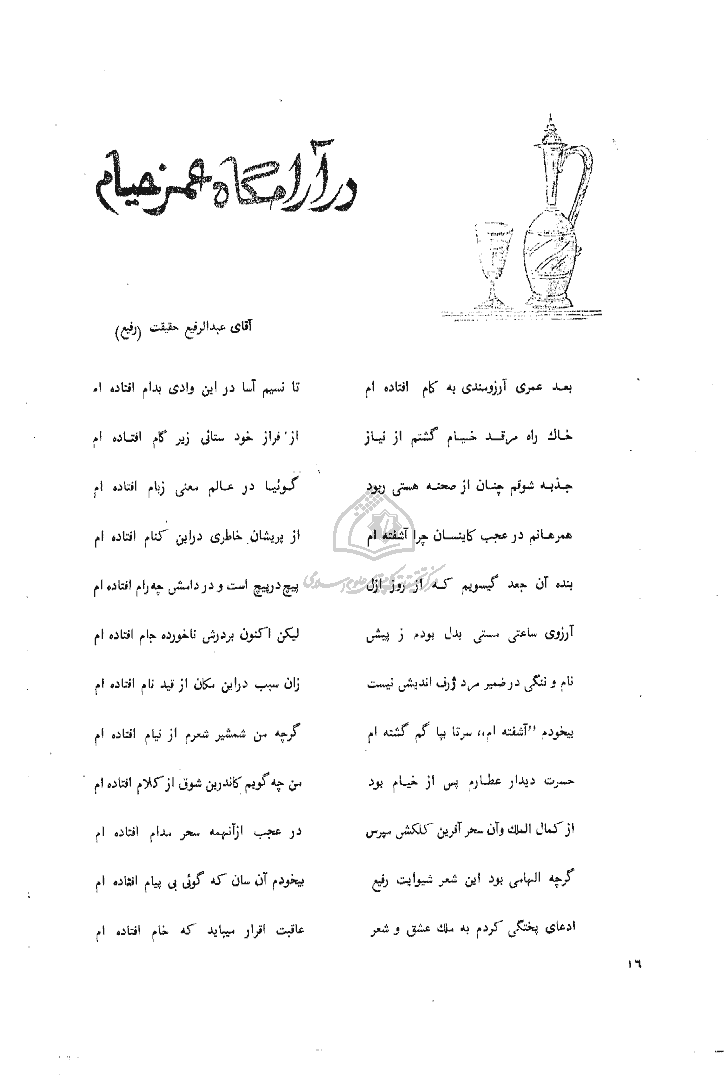 در آرامگاه عمر خیام
آقای عبدالرفیع حقیقت (رفیع)
بعد عمری آرزومندی به کام افتاده ام تا نسیم آسا در این وادی بدام افتاده ام
خاك راه مرقد خیام گشتم از نیاز از فراز خود ستائی زیر گام افتاده ام
جذبه شوقم چنان از صحنه هستی ربود گوئیا در عالم معنی زبام افتاده ام
همرهانم در عجب کاینسان چرا آشفته ام از پریشان خاطری دراین کنام افتاده ام
بنده آن جعد گیسویم که از روز ازل پیچ درپیچ است و در دامش چه رام افتاده ام
آرزوی ساعتی مستی بدل بودم ز پیش لیکن اکنون بردرش ناخورده جام افتاده ام
نام و ننگی در ضمیر مرد ژرف اندیش نیست زان سبب دراین مکان از قید نام افتاده ام
بیخودم "آشفته ام،، سرتا بپا گم گشته ام گرچه من شمشیر شعرم از نیام افتاده ام
حسرت دیدار عطارم پس از خیام بود من چه گویم کاندرین شوق از کلام افتاده ام
از کمال الملك وآن سحر آفرین کلکش مپرس در عجب ازآنهمه سحر مدام افتاده ام
گرچه الهامی بود این شعر شیوایت رفیع بیخودم آن سان که گوئی بی پیام افتاده ام
ادعای پختگی کردم به ملك عشق و شعر عاقبت اقرار میباید که خام افتاده ام
۱٦